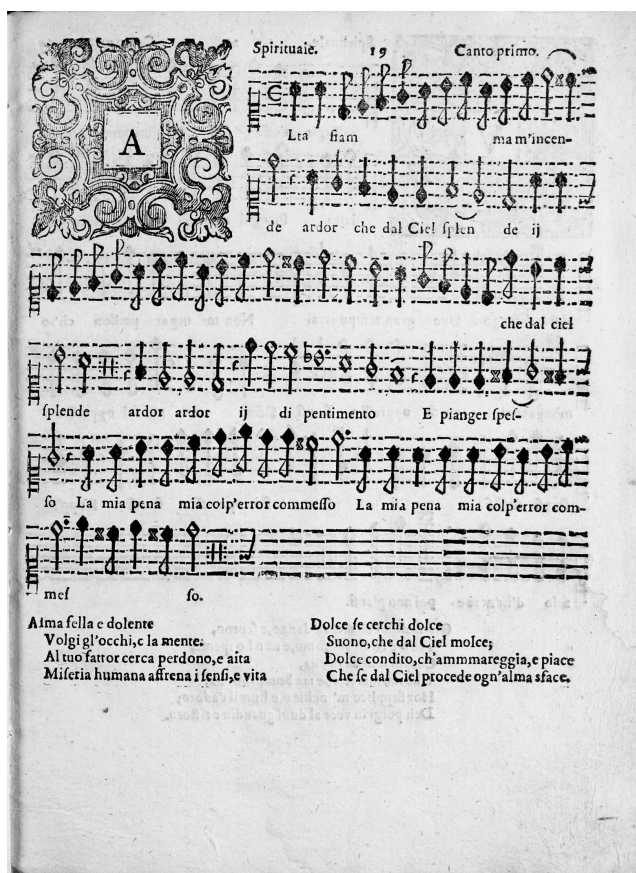 Spirituale. 19 Canto primo.
A
Lta fiam ma m'incen-
de ardor che dal Ciel ſplen de ij
che dal ciel
ſplende ardor ardor ij di pentimento E pianger ſpeſ-
ſo La mia pena mia colp'error commeſſo La mia pena mia colp'error com-
meſ ſo.
Alma fella e dolente
Volgi gl'occhi, e la mente;
Al tuo fattor cerca perdono, e aita
Miſeria humana affrena i ſenſi, e vita
Dolce ſe cerchi dolce
Suono, che dal Ciel molce;
Dolce condito, ch'ammmareggia, e piace
Che ſe dal Ciel procede ogn'alma sface.